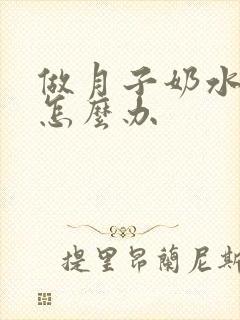 做月子奶水
怎麼办
提里昂蘭尼斯